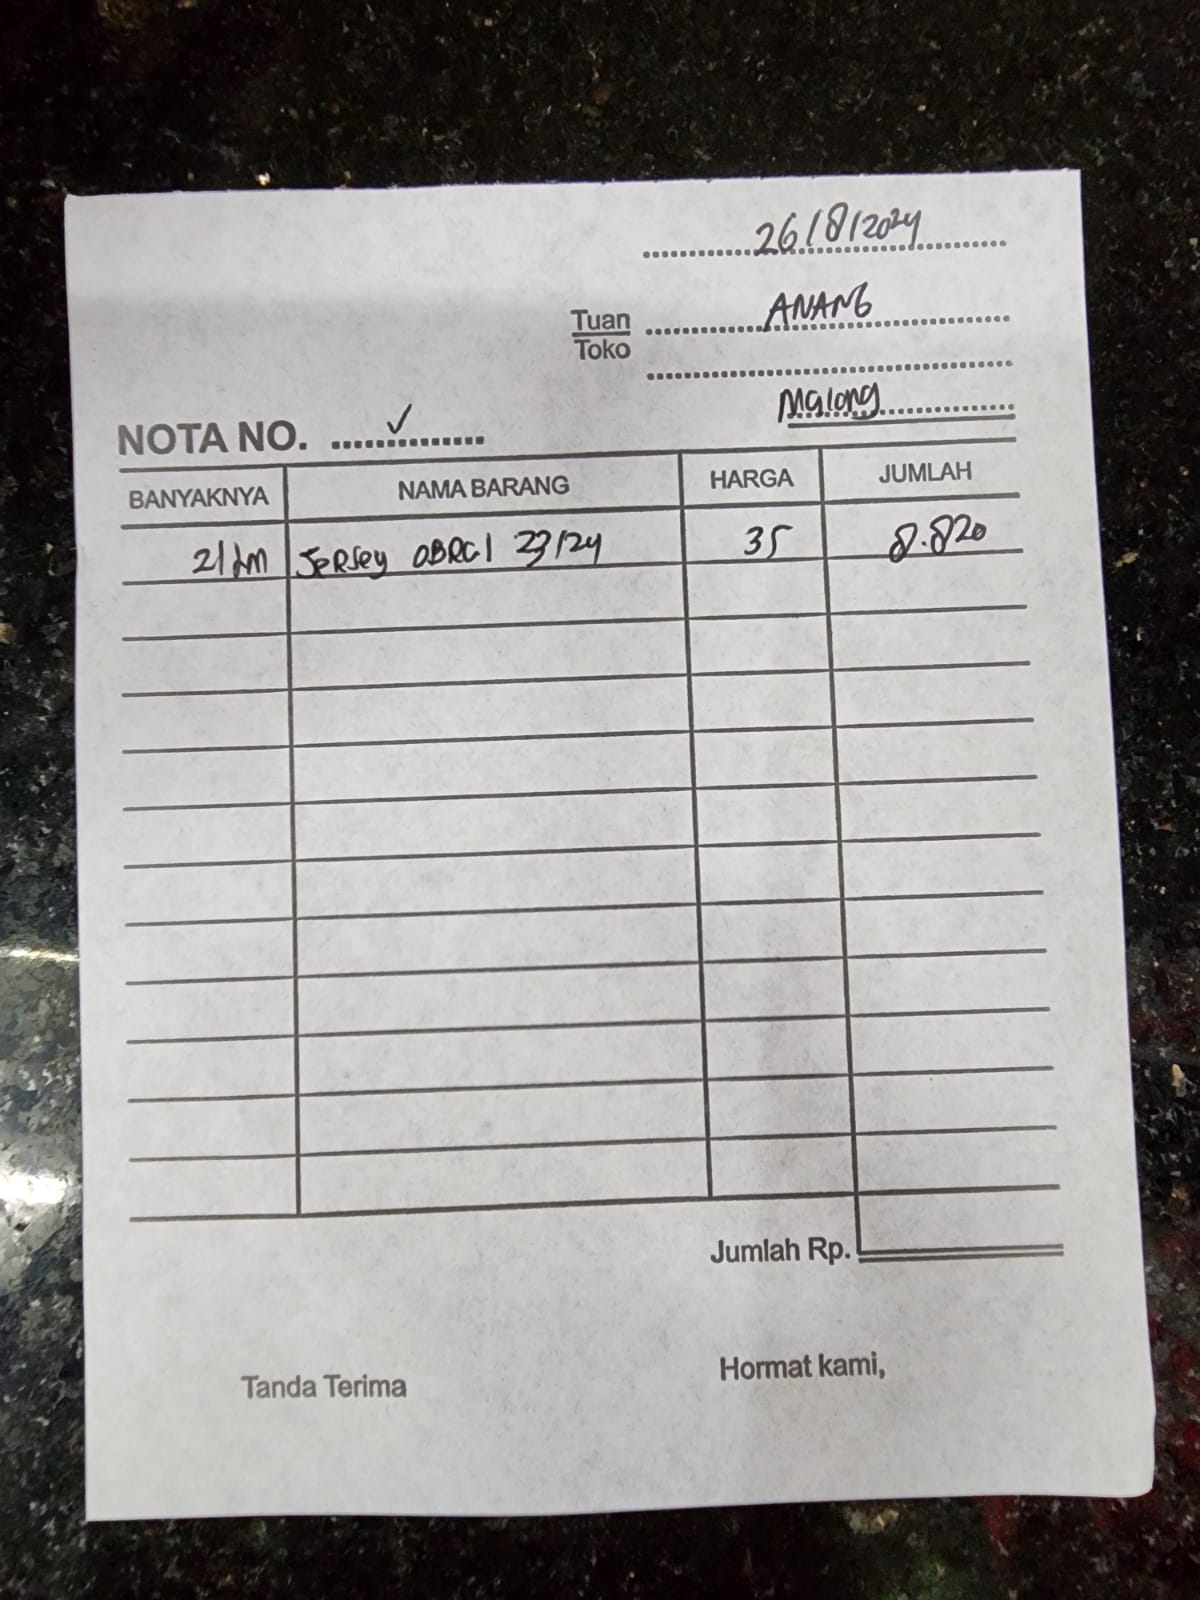 26/8/2024
Tuan ANANG
Toko
Malang
NOTA NO. ✓
BANYAKNYA NAMA BARANG HARGA JUMLAH
21 Jersey 23/24 35 8.820
Jumlah Rp.
Tanda Terima Hormat kami,